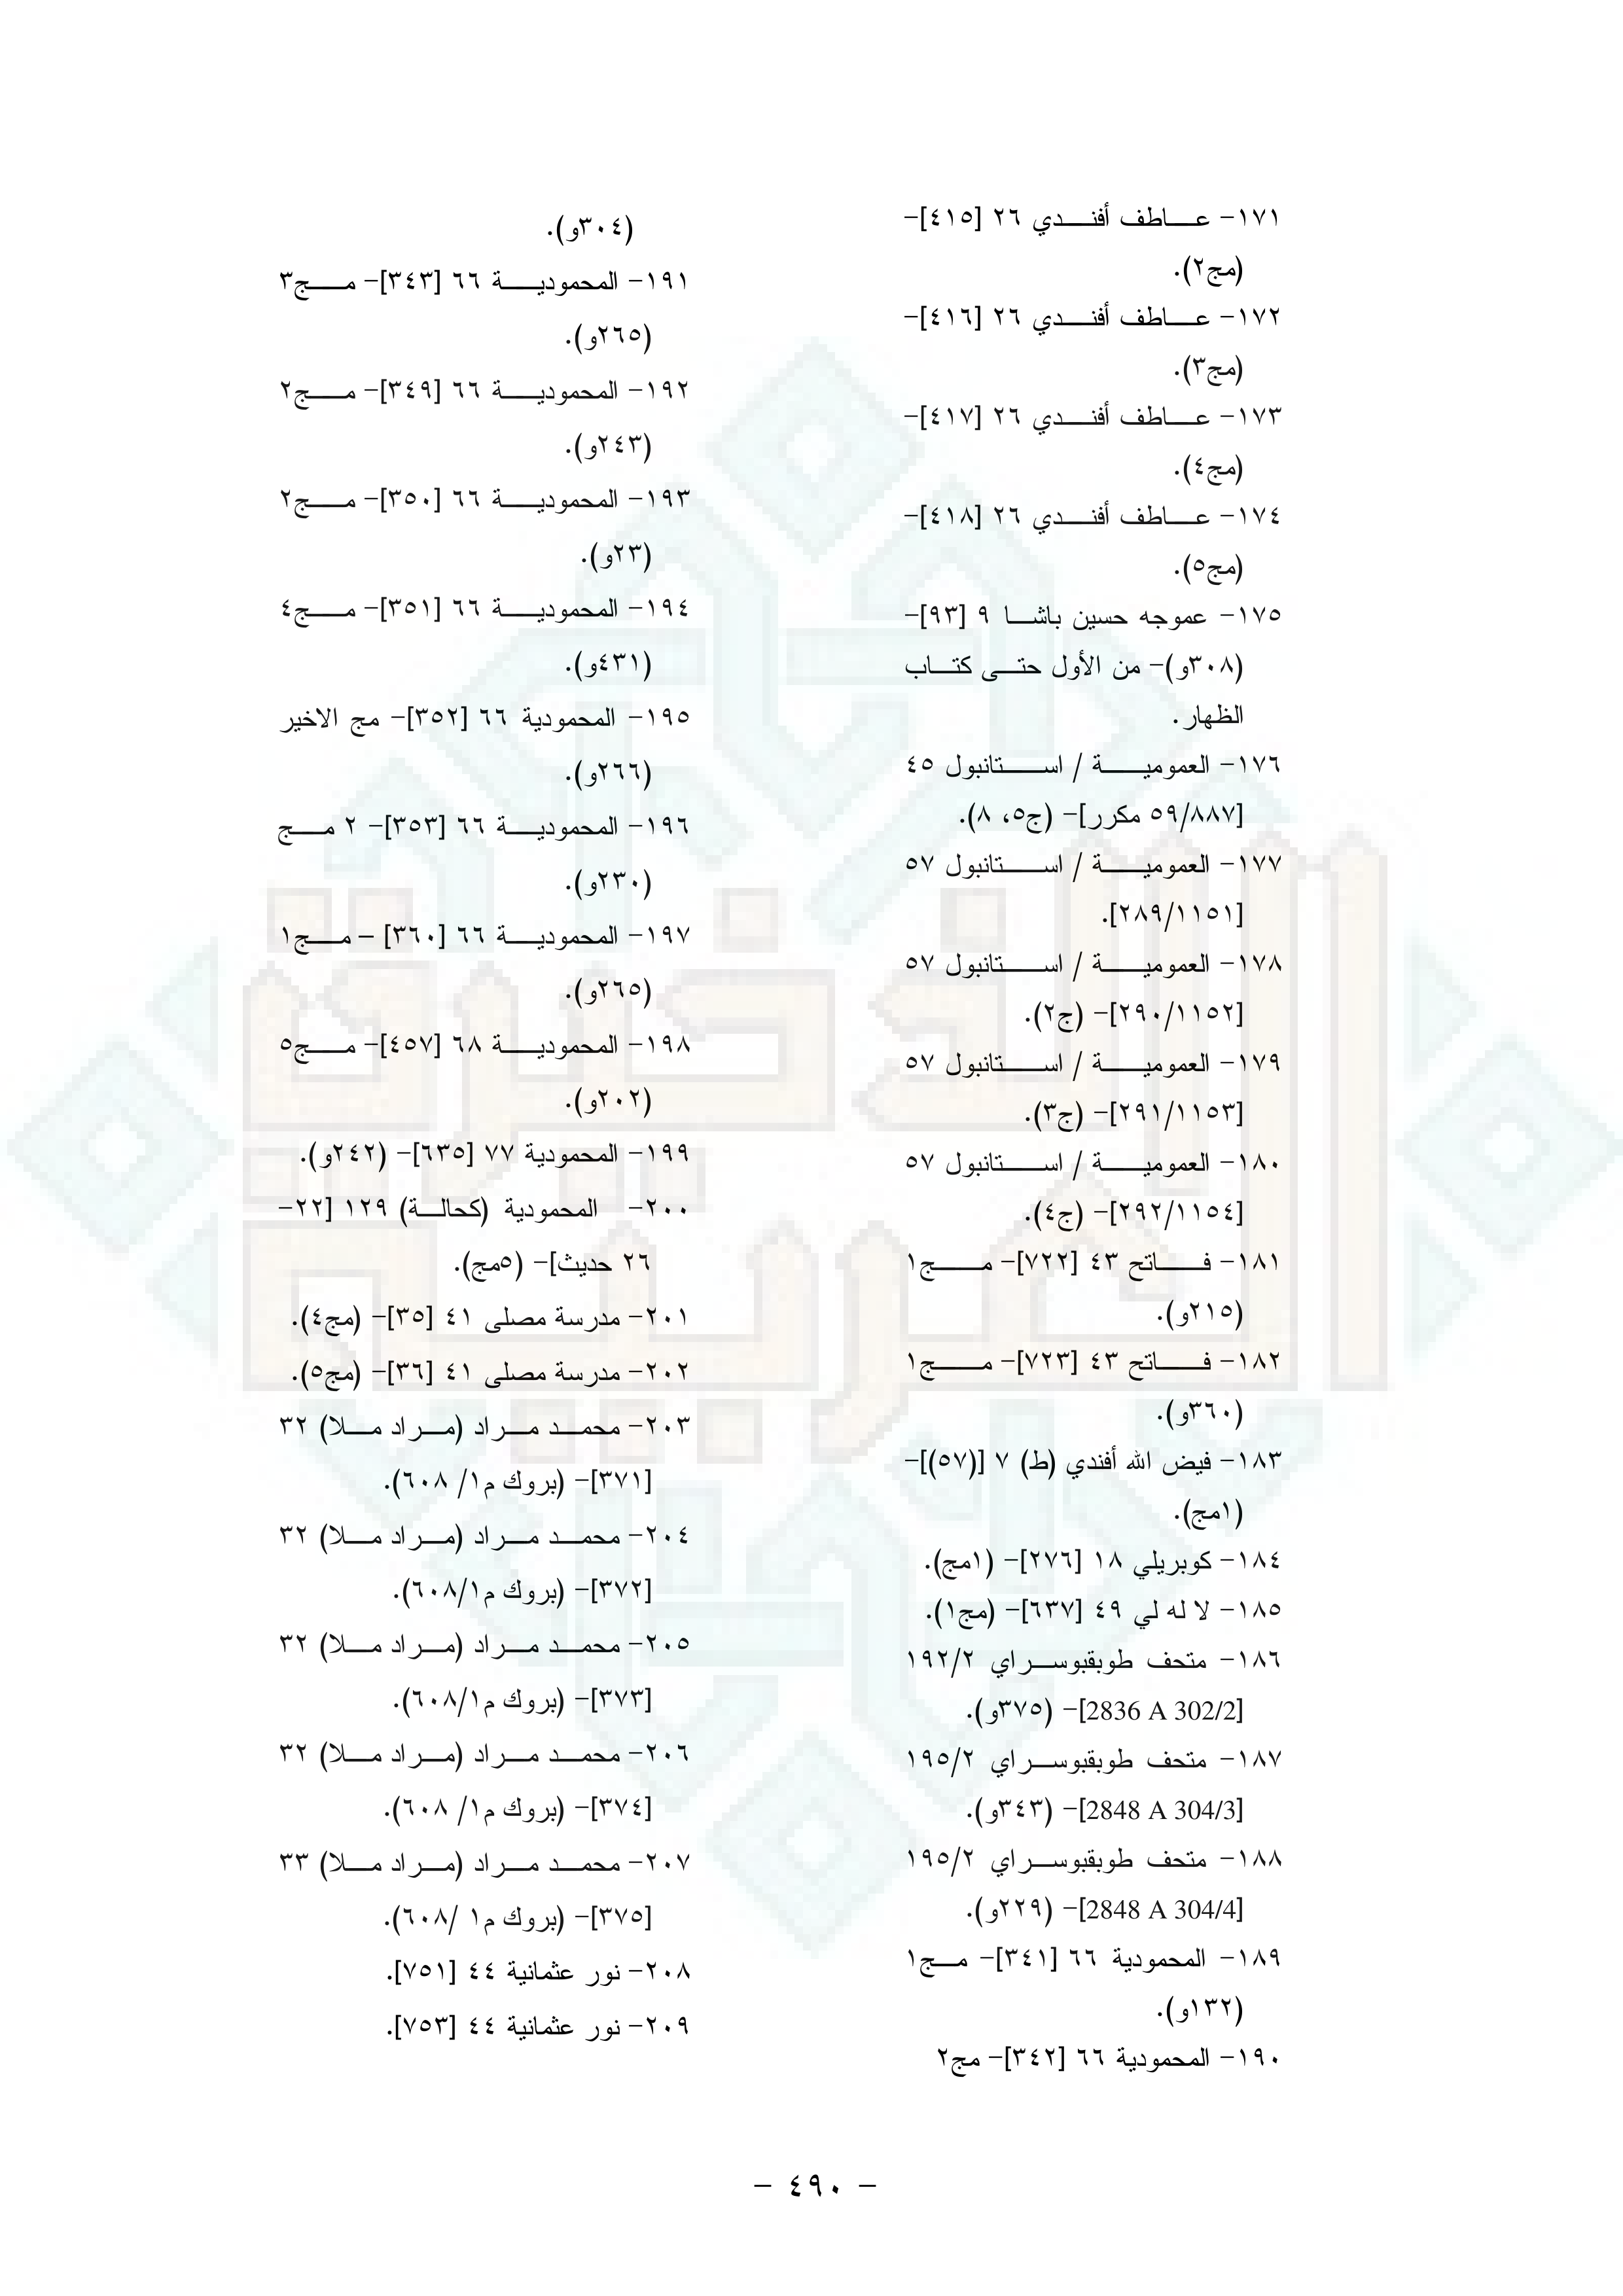 ١٧١- عاطف أفندي ٢٦ [٤١٥]-
(مج٢).
١٧٢- عاطف أفندي ٢٦ [٤١٦]-
(مج٣).
١٧٣- عاطف أفندي ٢٦ [٤١٧]-
(مج٤).
١٧٤- عاطف أفندي ٢٦ [٤١٨]-
(مج٥).
١٧٥- عموجه حسين باشا ٩ [٩٣]-
(٣٠٨و)- من الأول حتى كتاب
الظهار.
١٧٦- العمومية / استانبول ٤٥
[٥٩/٨٨٧ مكرر]- (ج٥، ٨).
١٧٧- العمومية / استانبول ٥٧
[٢٨٩/١١٥١].
١٧٨- العمومية / استانبول ٥٧
[٢٩٠/١١٥٢]- (ج٢).
١٧٩- العمومية / استانبول ٥٧
[٢٩١/١١٥٣]- (ج٣).
١٨٠- العمومية / استانبول ٥٧
[٢٩٢/١١٥٤]- (ج٤).
١٨١- فاتح ٤٣ [٧٢٢]- مج١
(٢١٥و).
١٨٢- فاتح ٤٣ [٧٢٣]- مج١
(٣٦٠و).
١٨٣- فيض الله أفندي (ط) ٧ [(٥٧)]-
(١مج).
١٨٤- كوبريلي ١٨ [٢٧٦]- (١مج).
١٨٥- لا له لي ٤٩ [٦٣٧]- (مج١).
١٨٦- متحف طوبقبوسراي ١٩٢/٢
[2836 A 302/2]- (٣٧٥و).
١٨٧- متحف طوبقبوسراي ١٩٥/٢
[2848 A 304/3]- (٣٤٣و).
١٨٨- متحف طوبقبوسراي ١٩٥/٢
[2848 A 304/4]- (٢٢٩و).
١٨٩- المحمودية ٦٦ [٣٤١]- مج١
(١٣٢و).
١٩٠- المحمودية ٦٦ [٣٤٢]- مج٢
(٣٠٤و).
١٩١- المحمودية ٦٦ [٣٤٣]- مج٣
(٢٦٥و).
١٩٢- المحمودية ٦٦ [٣٤٩]- مج٢
(٢٤٣و).
١٩٣- المحمودية ٦٦ [٣٥٠]- مج٢
(٢٣و).
١٩٤- المحمودية ٦٦ [٣٥١]- مج٤
(٤٣١و).
١٩٥- المحمودية ٦٦ [٣٥٢]- مج الاخير
(٢٦٦و).
١٩٦- المحمودية ٦٦ [٣٥٣]- ٢ مج
(٢٣٠و).
١٩٧- المحمودية ٦٦ [٣٦٠] – مج١
(٢٦٥و).
١٩٨- المحمودية ٦٨ [٤٥٧]- مج٥
(٢٠٢و).
١٩٩- المحمودية ٧٧ [٦٣٥]- (٢٤٢و).
٢٠٠- المحمودية (كحالة) ١٢٩ [٢٢-
٢٦ حديث]- (٥مج).
٢٠١- مدرسة مصلى ٤١ [٣٥]- (مج٤).
٢٠٢- مدرسة مصلى ٤١ [٣٦]- (مج٥).
٢٠٣- محمد مراد (مراد ملا) ٣٢
[٣٧١]- (بروك م١/ ٦٠٨).
٢٠٤- محمد مراد (مراد ملا) ٣٢
[٣٧٢]- (بروك م١/٦٠٨).
٢٠٥- محمد مراد (مراد ملا) ٣٢
[٣٧٣]- (بروك م١/٦٠٨).
٢٠٦- محمد مراد (مراد ملا) ٣٢
[٣٧٤]- (بروك م١/ ٦٠٨).
٢٠٧- محمد مراد (مراد ملا) ٣٣
[٣٧٥]- (بروك م١ /٦٠٨).
٢٠٨- نور عثمانية ٤٤ [٧٥١].
٢٠٩- نور عثمانية ٤٤ [٧٥٣].
- ٤٩٠ -